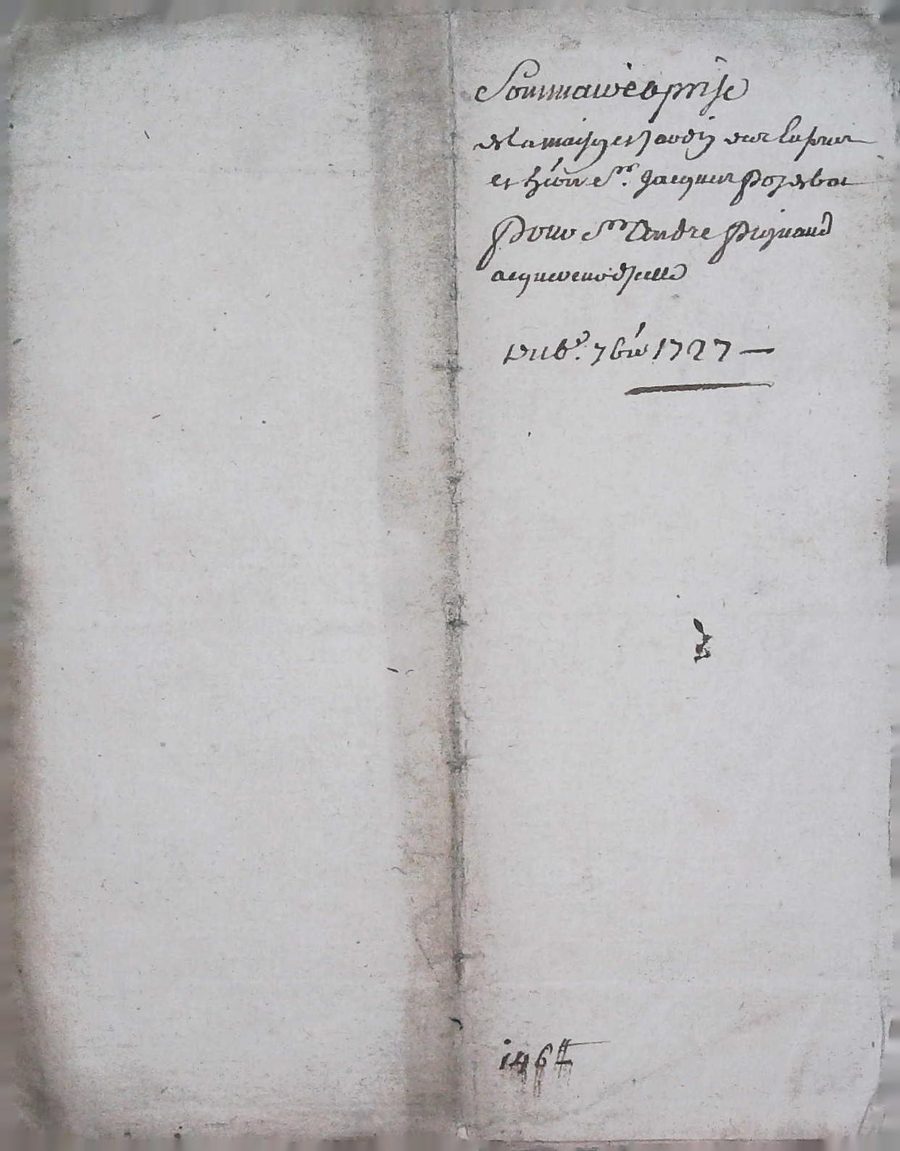 Sommaire aprise
de la maison et jardin des
et Sr. Jacques
Pour Sr. Andre Pignaud
acquereur d'jcelle
Du 6e. 7bre 1727 —
146 ₶